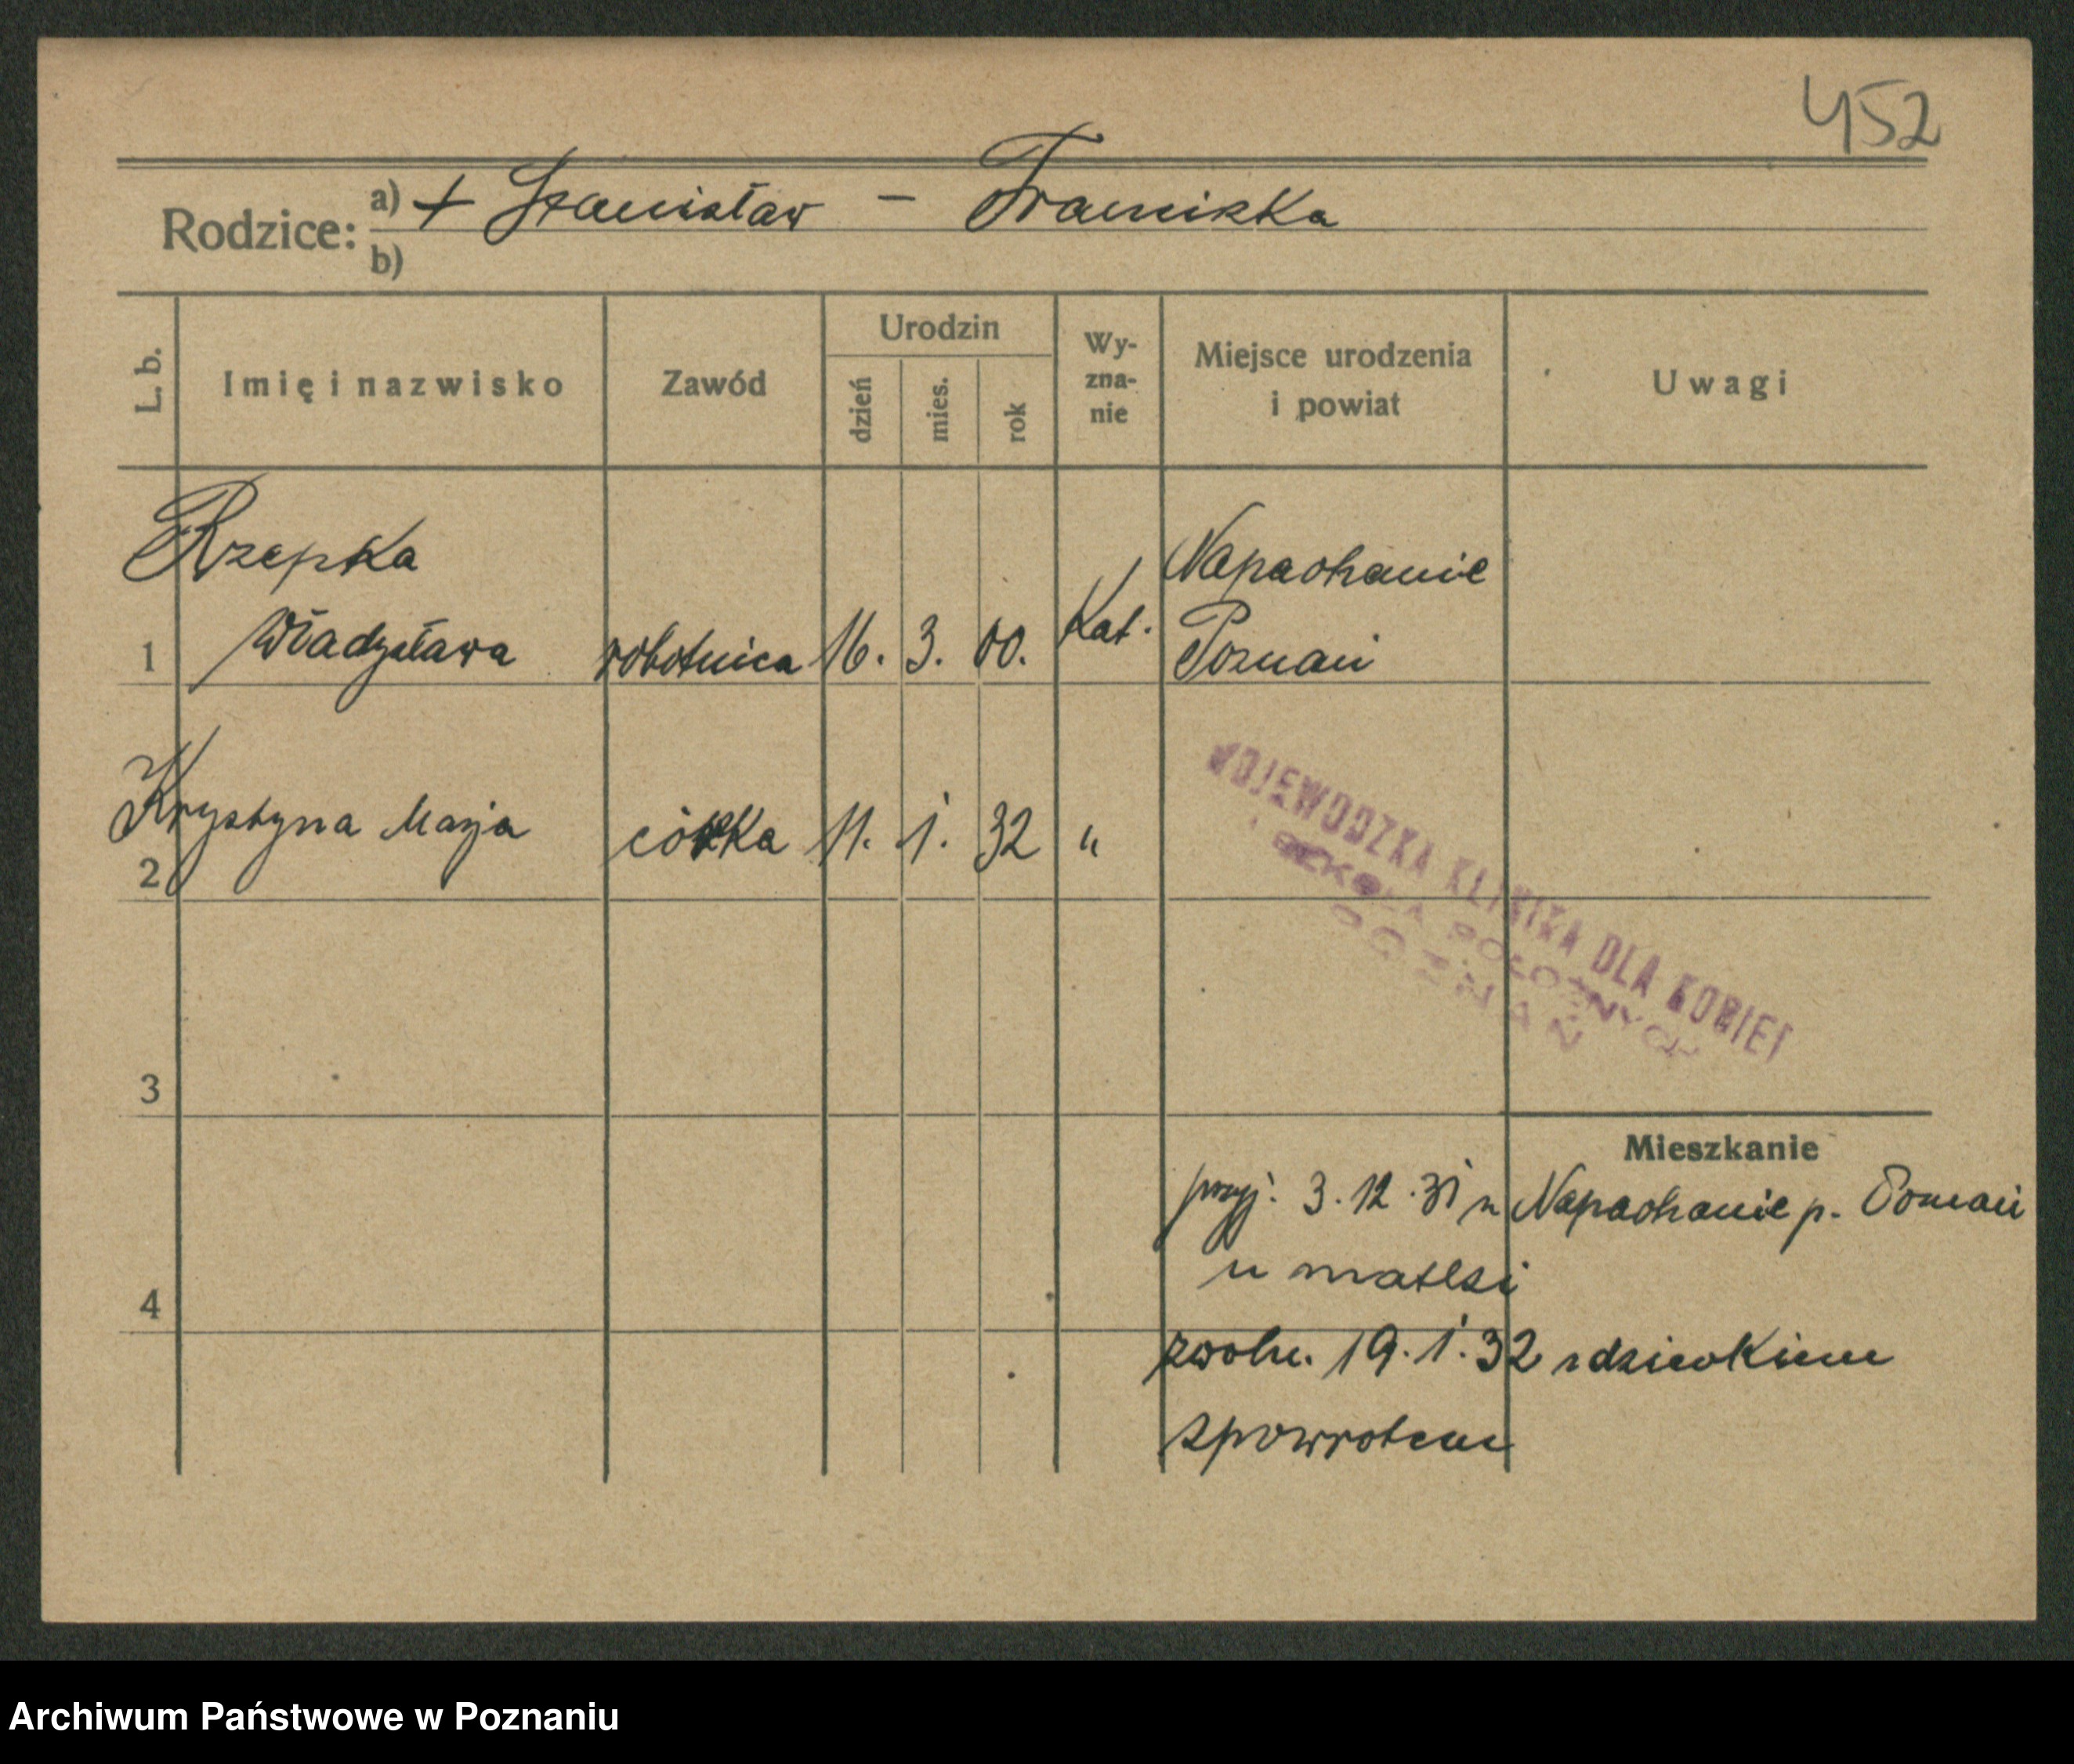 452
Rodzice: a) + Stanisław – Franciszka
b)
L. b. Imię i nazwisko Zawód Urodzin dzień mies. rok Wy-zna-nie Miejsce urodzenia i powiat Uwagi
Rzepka Napachanie
1 Władysława robotnica 16. 3. 00. Kat. Poznań
2 Krystyna Marja córka 11. 1. 32 "
WOJEWODZKA KLINIKA DLA KOBIET
I SZKOŁA POŁOŻNYCH
POZNAŃ
3
Mieszkanie
przyj. 3.12.31 z Napachanie p. Poznań
4 u matki
zwoln. 19.1.32 z dzieckiem
spowrotem
Archiwum Państwowe w Poznaniu